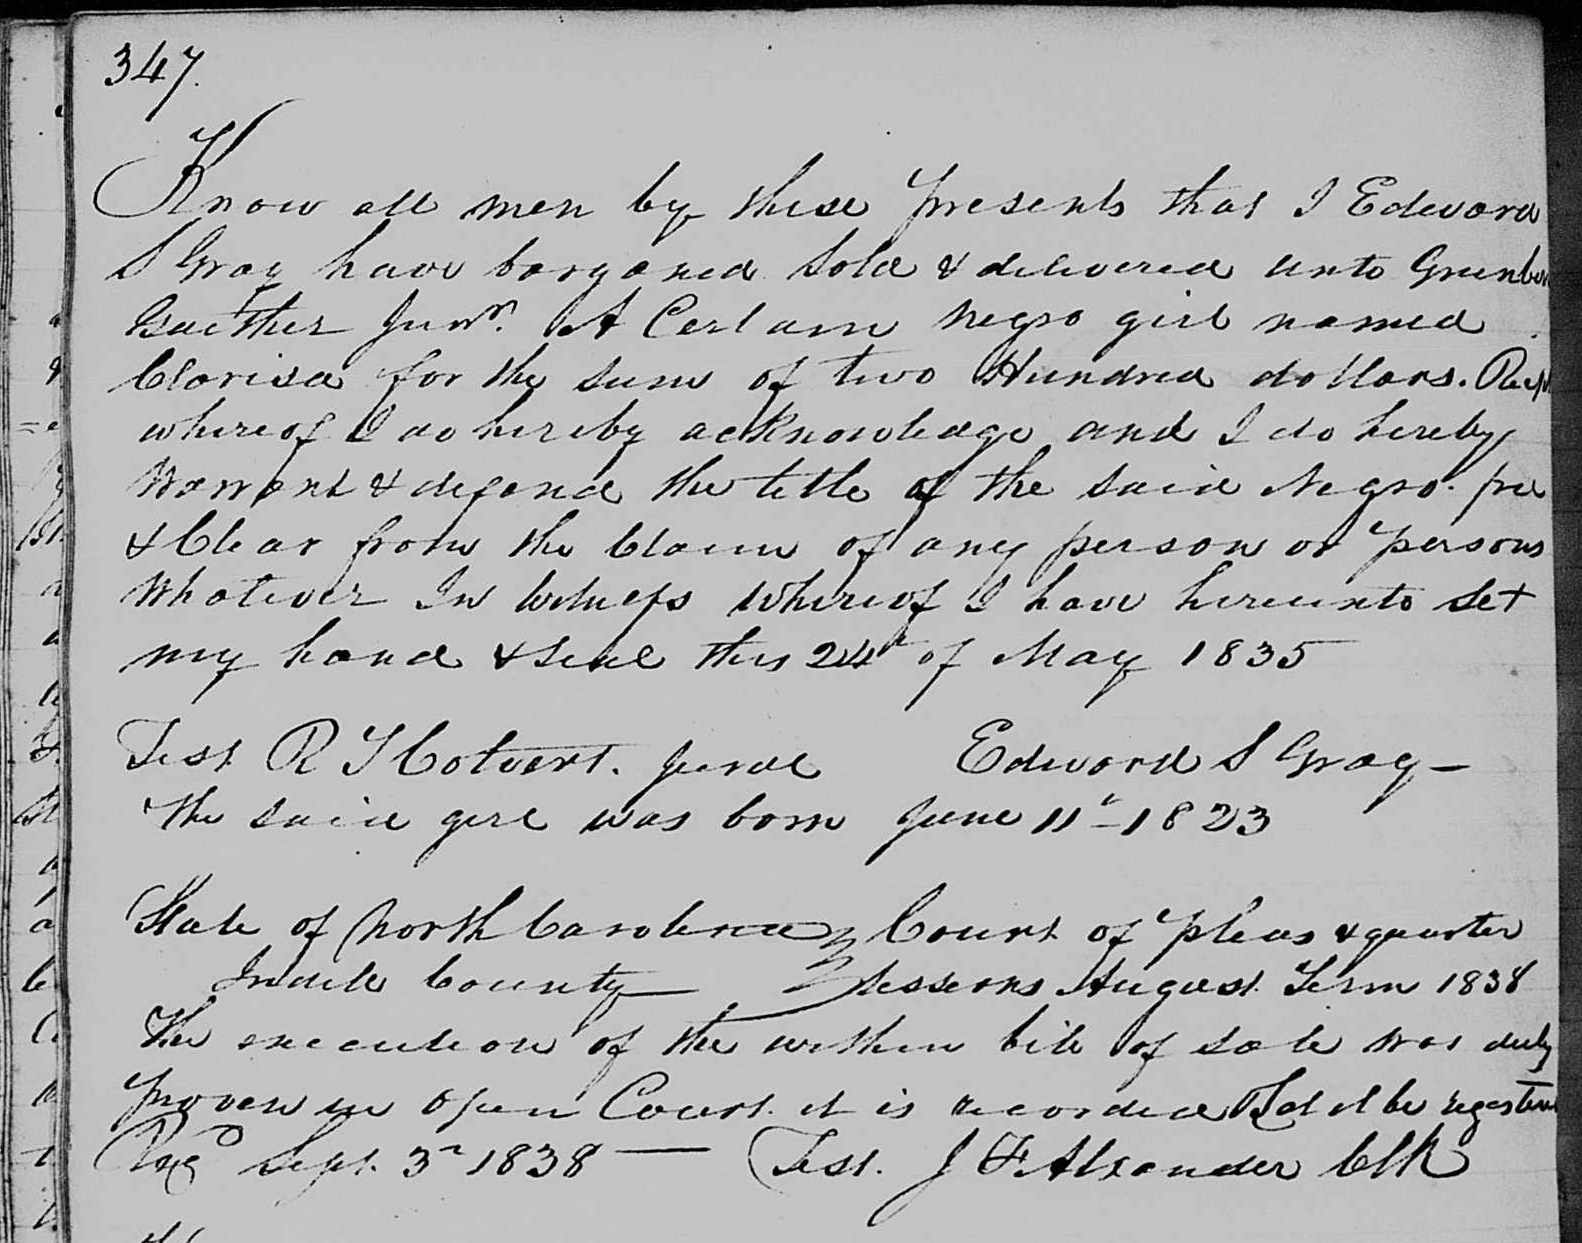 347.
Know all men by these presents that I Edward
S Gray have barganed sold & delivered unto Greenberr
Gaither Junr. A Certain negro girl named
Clarisa for the sum of two Hundred dollars. Recpt
whereof I do hereby acknowledge and I do hereby
Warrant & defend the title of the said Negro free
& Clear from the Claim of any person or persons
Whatever In Witness Whereof I have hereunto set
my hand & seal this 24th of May 1835
Test R T Colvert. jurat Edward S Gray —
The said girl was born June 11th 1823
State of North Carolina Court of pleas & quarter
Iredell County Sessions August Term 1838
The execution of the within bill of sale was duly
proven in open Court. it is recorded & let it be registered
Regd Sept. 3rd 1838 — Test. J F Alexander Clk